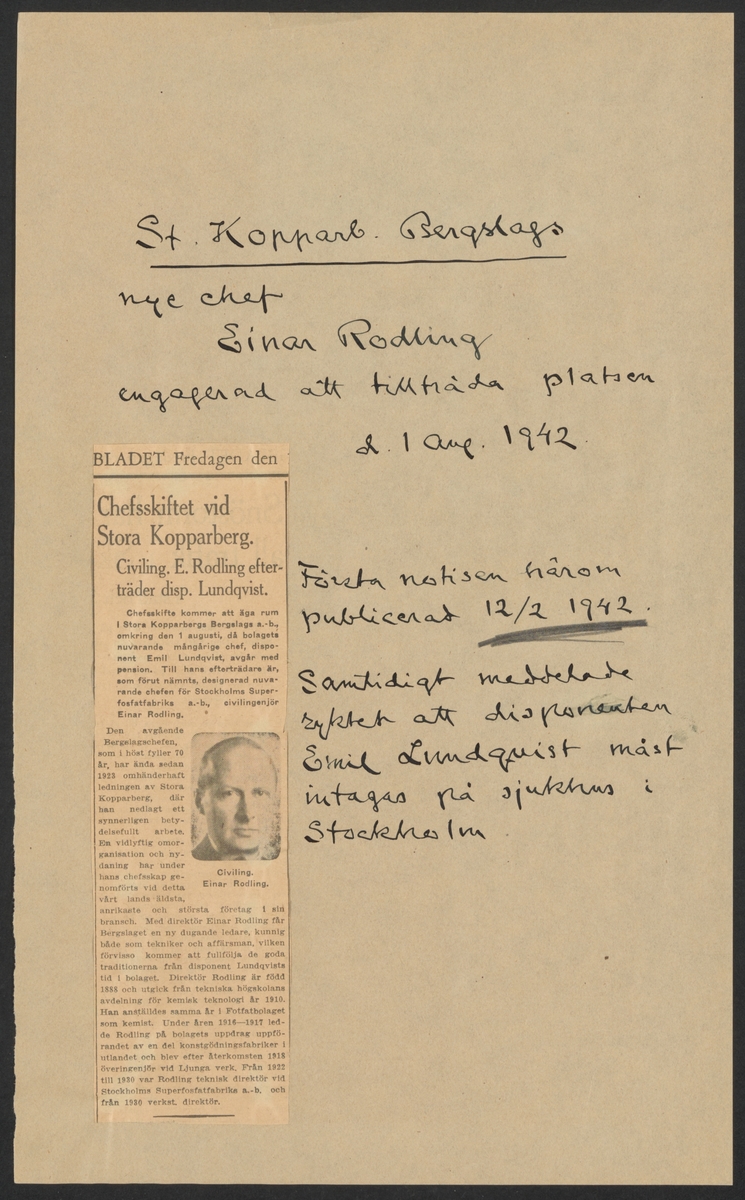 St. Kopparb. Bergslags
nye chef
Einar Rodling
engagerad att tillträda platsen
d. 1 aug. 1942.
BLADET Fredagen den
Chefsskiftet vid
Stora Kopparberg.
Civiling. E. Rodling efter-
träder disp. Lundqvist.
Chefsskifte kommer att äga rum
i Stora Kopparbergs Bergslags a.-b.,
omkring den 1 augusti, då bolagets
nuvarande mångårige chef, dispo-
nent Emil Lundqvist, avgår med
pension. Till hans efterträdare är,
som förut nämnts, designerad nuva-
rande chefen för Stockholms Super-
fosfatfabriks a.-b., civilingenjör
Einar Rodling.
Den avgående
Bergslagschefen,
som i höst fyller 70
år, har ända sedan
1923 omhänderhaft
ledningen av Stora
Kopparberg, där
han nedlagt ett
synnerligen bety-
delsefullt arbete.
En vidlyftig omor-
ganisation och ny-
daning har under
hans chefsskap ge-
nomförts vid detta
vårt lands äldsta,
anrikaste och största företag i sin
bransch. Med direktör Einar Rodling får
Bergslaget en ny dugande ledare, kunnig
både som tekniker och affärsman, vilken
förvisso kommer att fullfölja de goda
traditionerna från disponent Lundqvists
tid i bolaget. Direktör Rodling är född
1888 och utgick från tekniska högskolans
avdelning för kemisk teknologi år 1910.
Han anställdes samma år i Fotfatbolaget
som kemist. Under åren 1916—1917 led-
de Rodling på bolagets uppdrag uppfö-
randet av en del konstgödningsfabriker i
utlandet och blev efter återkomsten 1918
överingenjör vid Ljunga verk. Från 1922
till 1930 var Rodling teknisk direktör vid
Stockholms Superfosfatfabriks a.-b. och
från 1930 verkst. direktör.
Civiling.
Einar Rodling.
Första notisen härom
publicerad 12/2 1942.
Samtidigt meddelade
ryktet att disponenten
Emil Lundquist måst
intagas på sjukhus i
Stockholm.